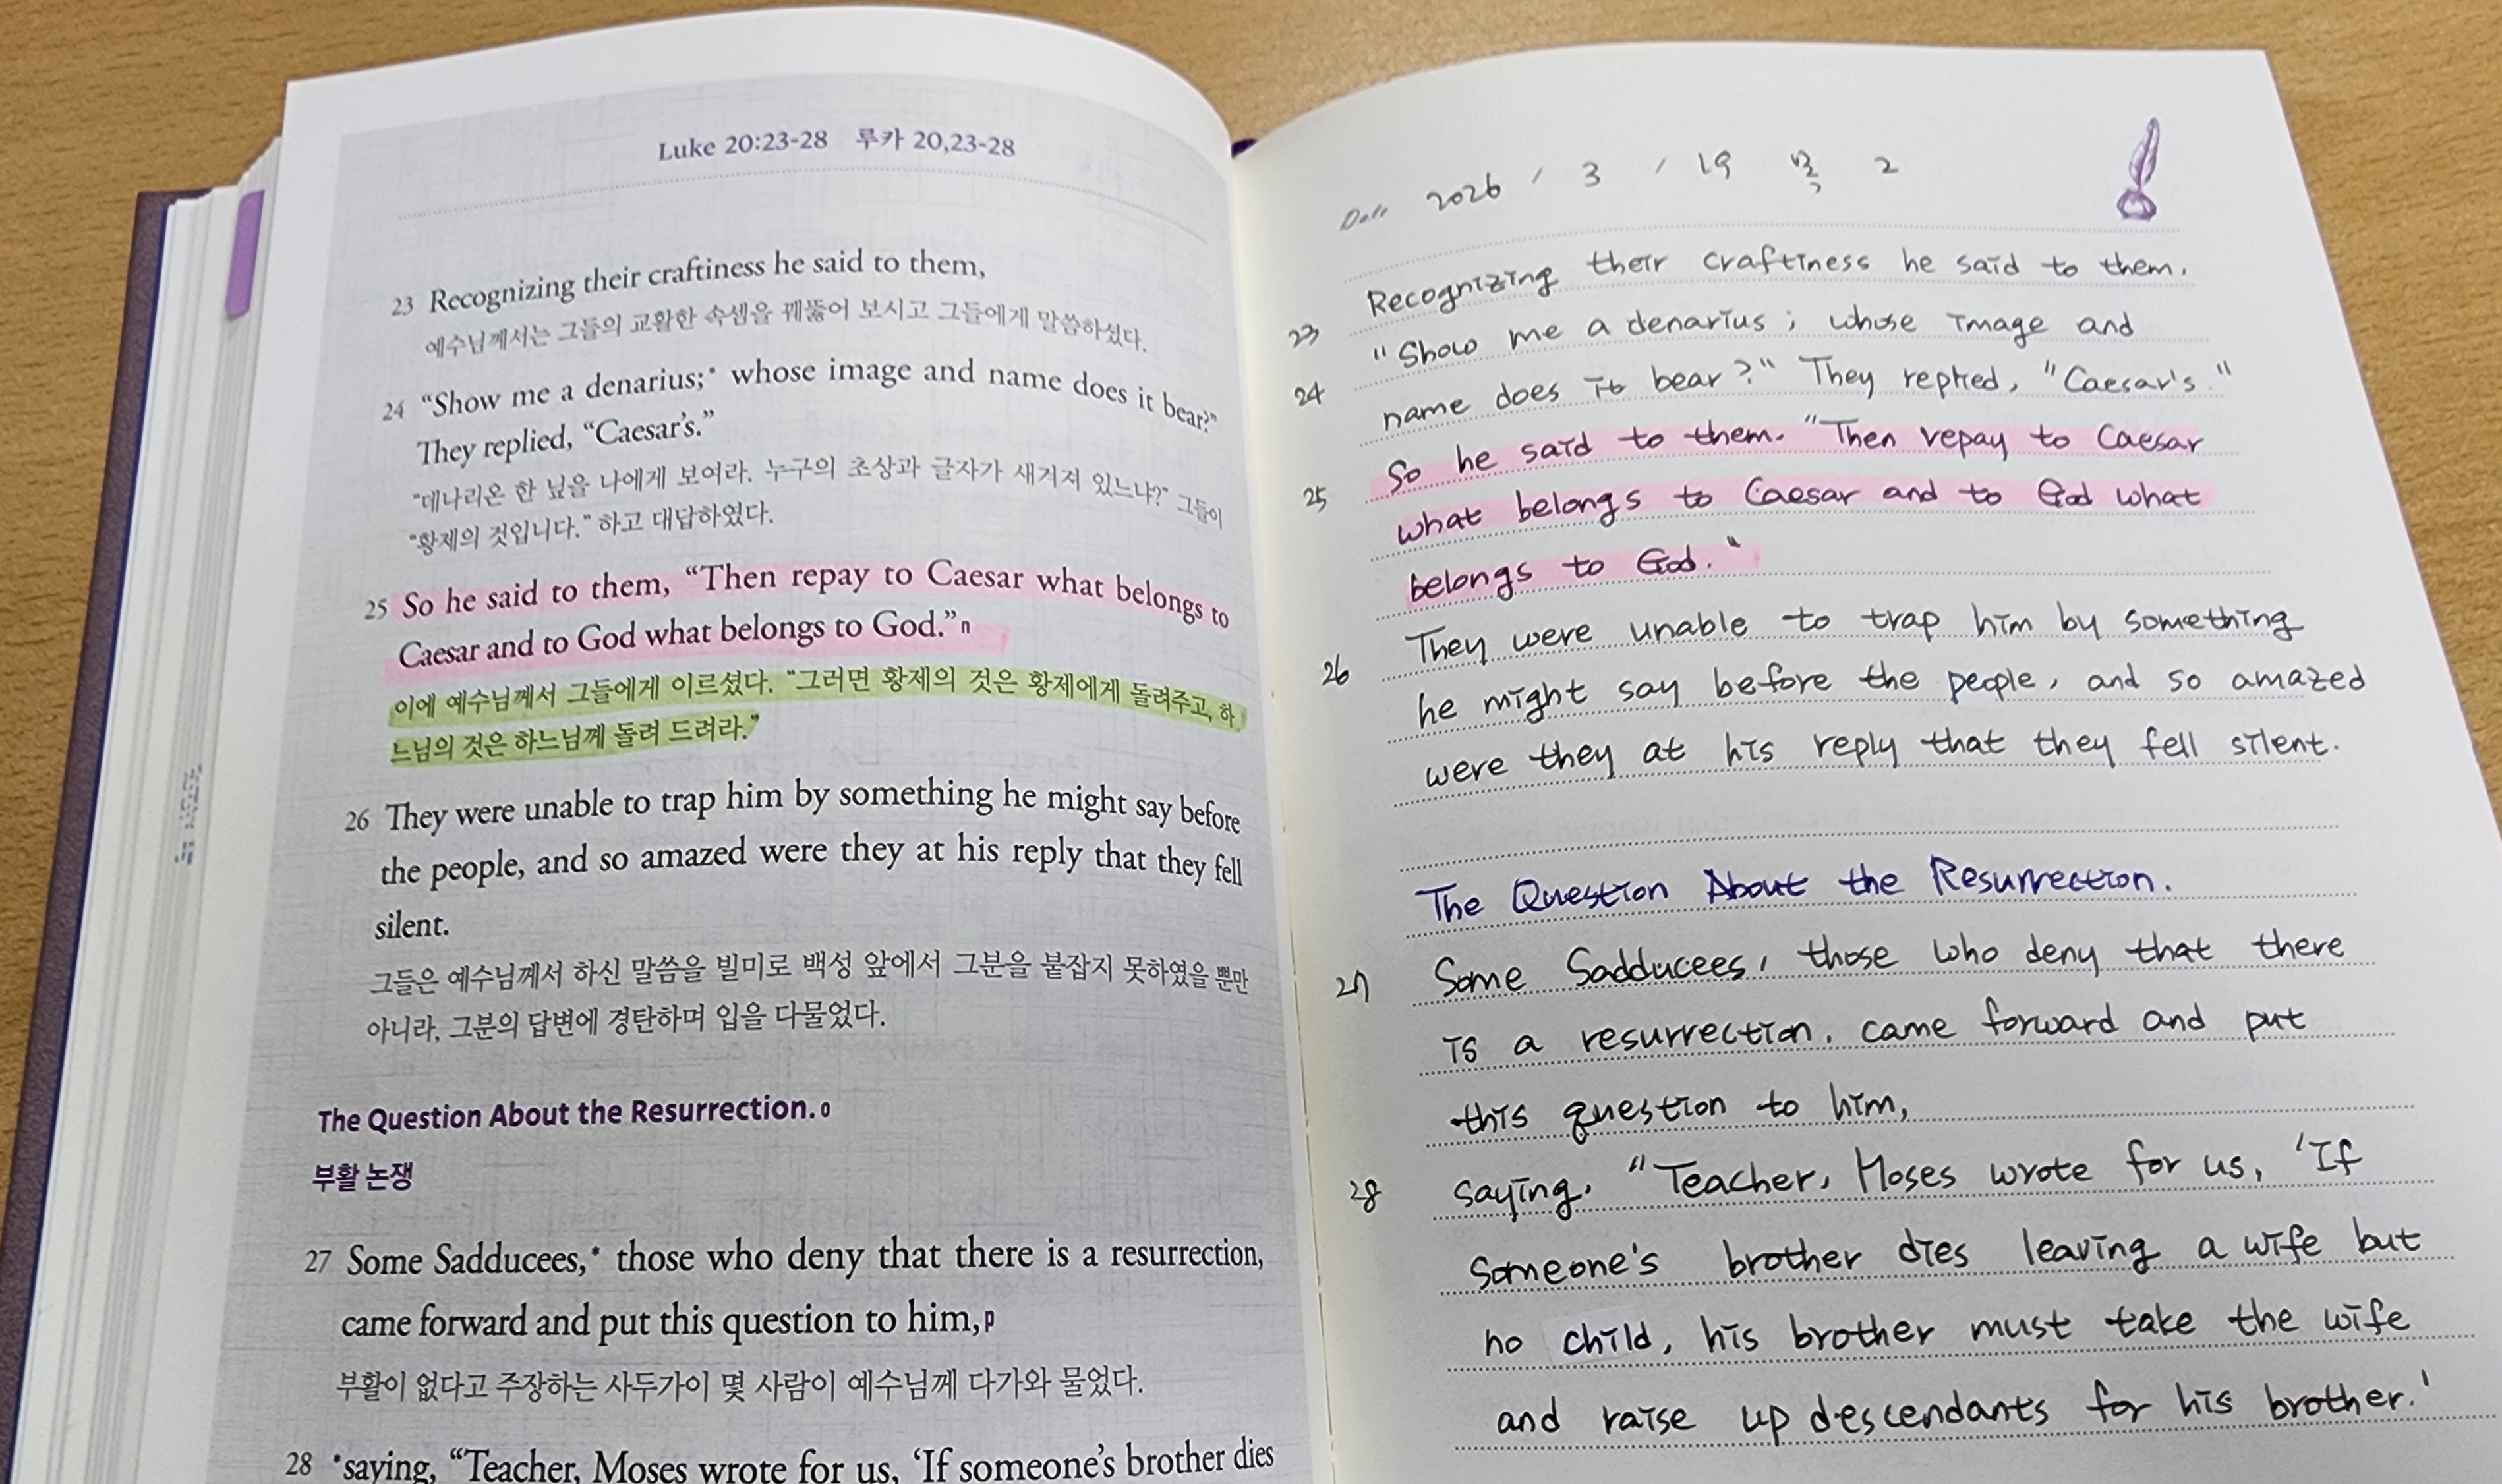 Luke 20:23-28 루카 20,23-28
23 Recognizing their craftiness he said to them,
예수님께서는 그들의 교활한 속셈을 꿰뚫어 보시고 그들에게 말씀하셨다.
24 “Show me a denarius;* whose image and name does it bear?”
They replied, “Caesar’s.”
“데나리온 한 닢을 나에게 보여라. 누구의 초상과 글자가 새겨져 있느냐?” 그들이
“황제의 것입니다.” 하고 대답하였다.
25 So he said to them, “Then repay to Caesar what belongs to
Caesar and to God what belongs to God.”n
이에 예수님께서 그들에게 이르셨다. “그러면 황제의 것은 황제에게 돌려주고, 하
느님의 것은 하느님께 돌려 드려라.”
26 They were unable to trap him by something he might say before
the people, and so amazed were they at his reply that they fell
silent.
그들은 예수님께서 하신 말씀을 빌미로 백성 앞에서 그분을 붙잡지 못하였을 뿐만
아니라, 그분의 답변에 경탄하며 입을 다물었다.
The Question About the Resurrection.o
부활 논쟁
27 Some Sadducees,* those who deny that there is a resurrection,
came forward and put this question to him,p
부활이 없다고 주장하는 사두가이 몇 사람이 예수님께 다가와 물었다.
28 *saying, “Teacher, Moses wrote for us, ‘If someone’s brother dies
Date 2026 / 3 / 19 목 2
23 Recognizing their craftiness he said to them.
24 "Show me a denarius; whose image and
name does it bear?" They replied, "Caesar's."
25 So he said to them. "Then repay to Caesar
what belongs to Caesar and to God what
belongs to God."
26 They were unable to trap him by something
he might say before the people, and so amazed
were they at his reply that they fell silent.
The Question About the Resurrection.
27 Some Sadducees, those who deny that there
is a resurrection, came forward and put
this question to him,
28 saying, "Teacher, Moses wrote for us, 'If
someone's brother dies leaving a wife but
no child, his brother must take the wife
and raise up descendants for his brother.'